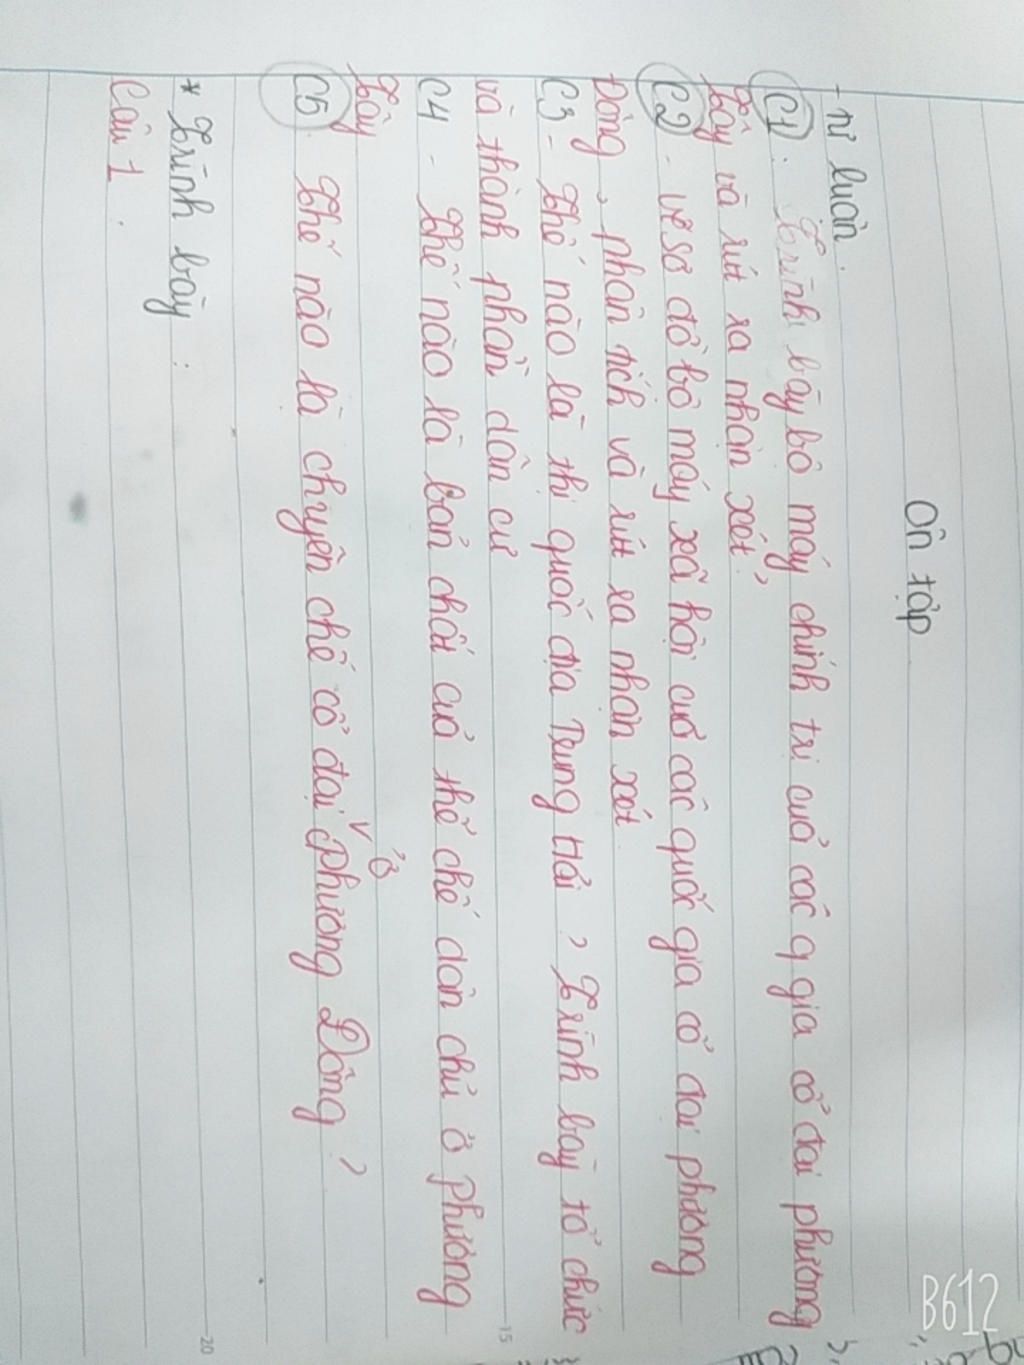 Ôn tập
- Tự luận.
C1. Trình bày bộ máy chính trị của các q gia cổ đại phương
Tây và rút ra nhận xét?
C2. Vẽ sơ đồ bộ máy xã hội của các quốc gia cổ đại phương
Đông, phân tích và rút ra nhận xét
C3 - Thế nào là thị quốc địa Trung Hải? Trình bày tổ chức
và thành phần dân cư
C4 - Thế nào là bản chất của thể chế dân chủ ở phương
Tây
C5. Thế nào là chuyên chế cổ đại ở phương Đông?
* Trình bày:
Câu 1.
15
20
B612